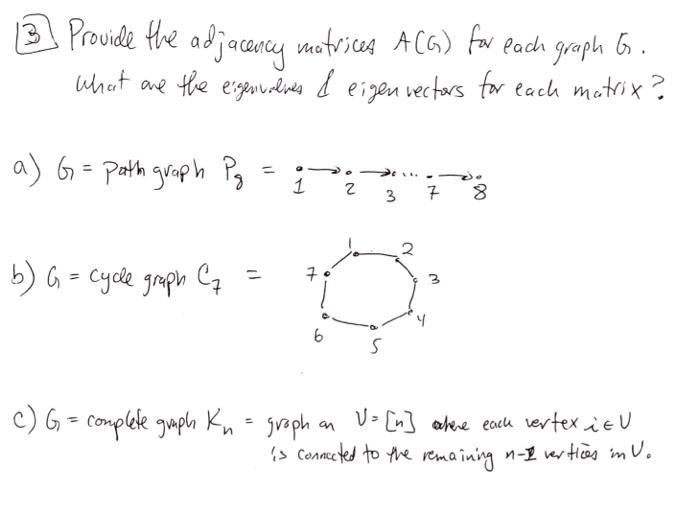 3 Provide the adjacency matrices A(G) for each graph G.
What are the eigenvalues & eigenvectors for each matrix?
a) G = path graph P8 =
1 2 3 ... 7 8
b) G = cycle graph C7 =
1 2 3 4 5 6 7
c) G = complete graph Kn = graph on V = [n] where each vertex i ∈ V
is connected to the remaining n-1 vertices in V.